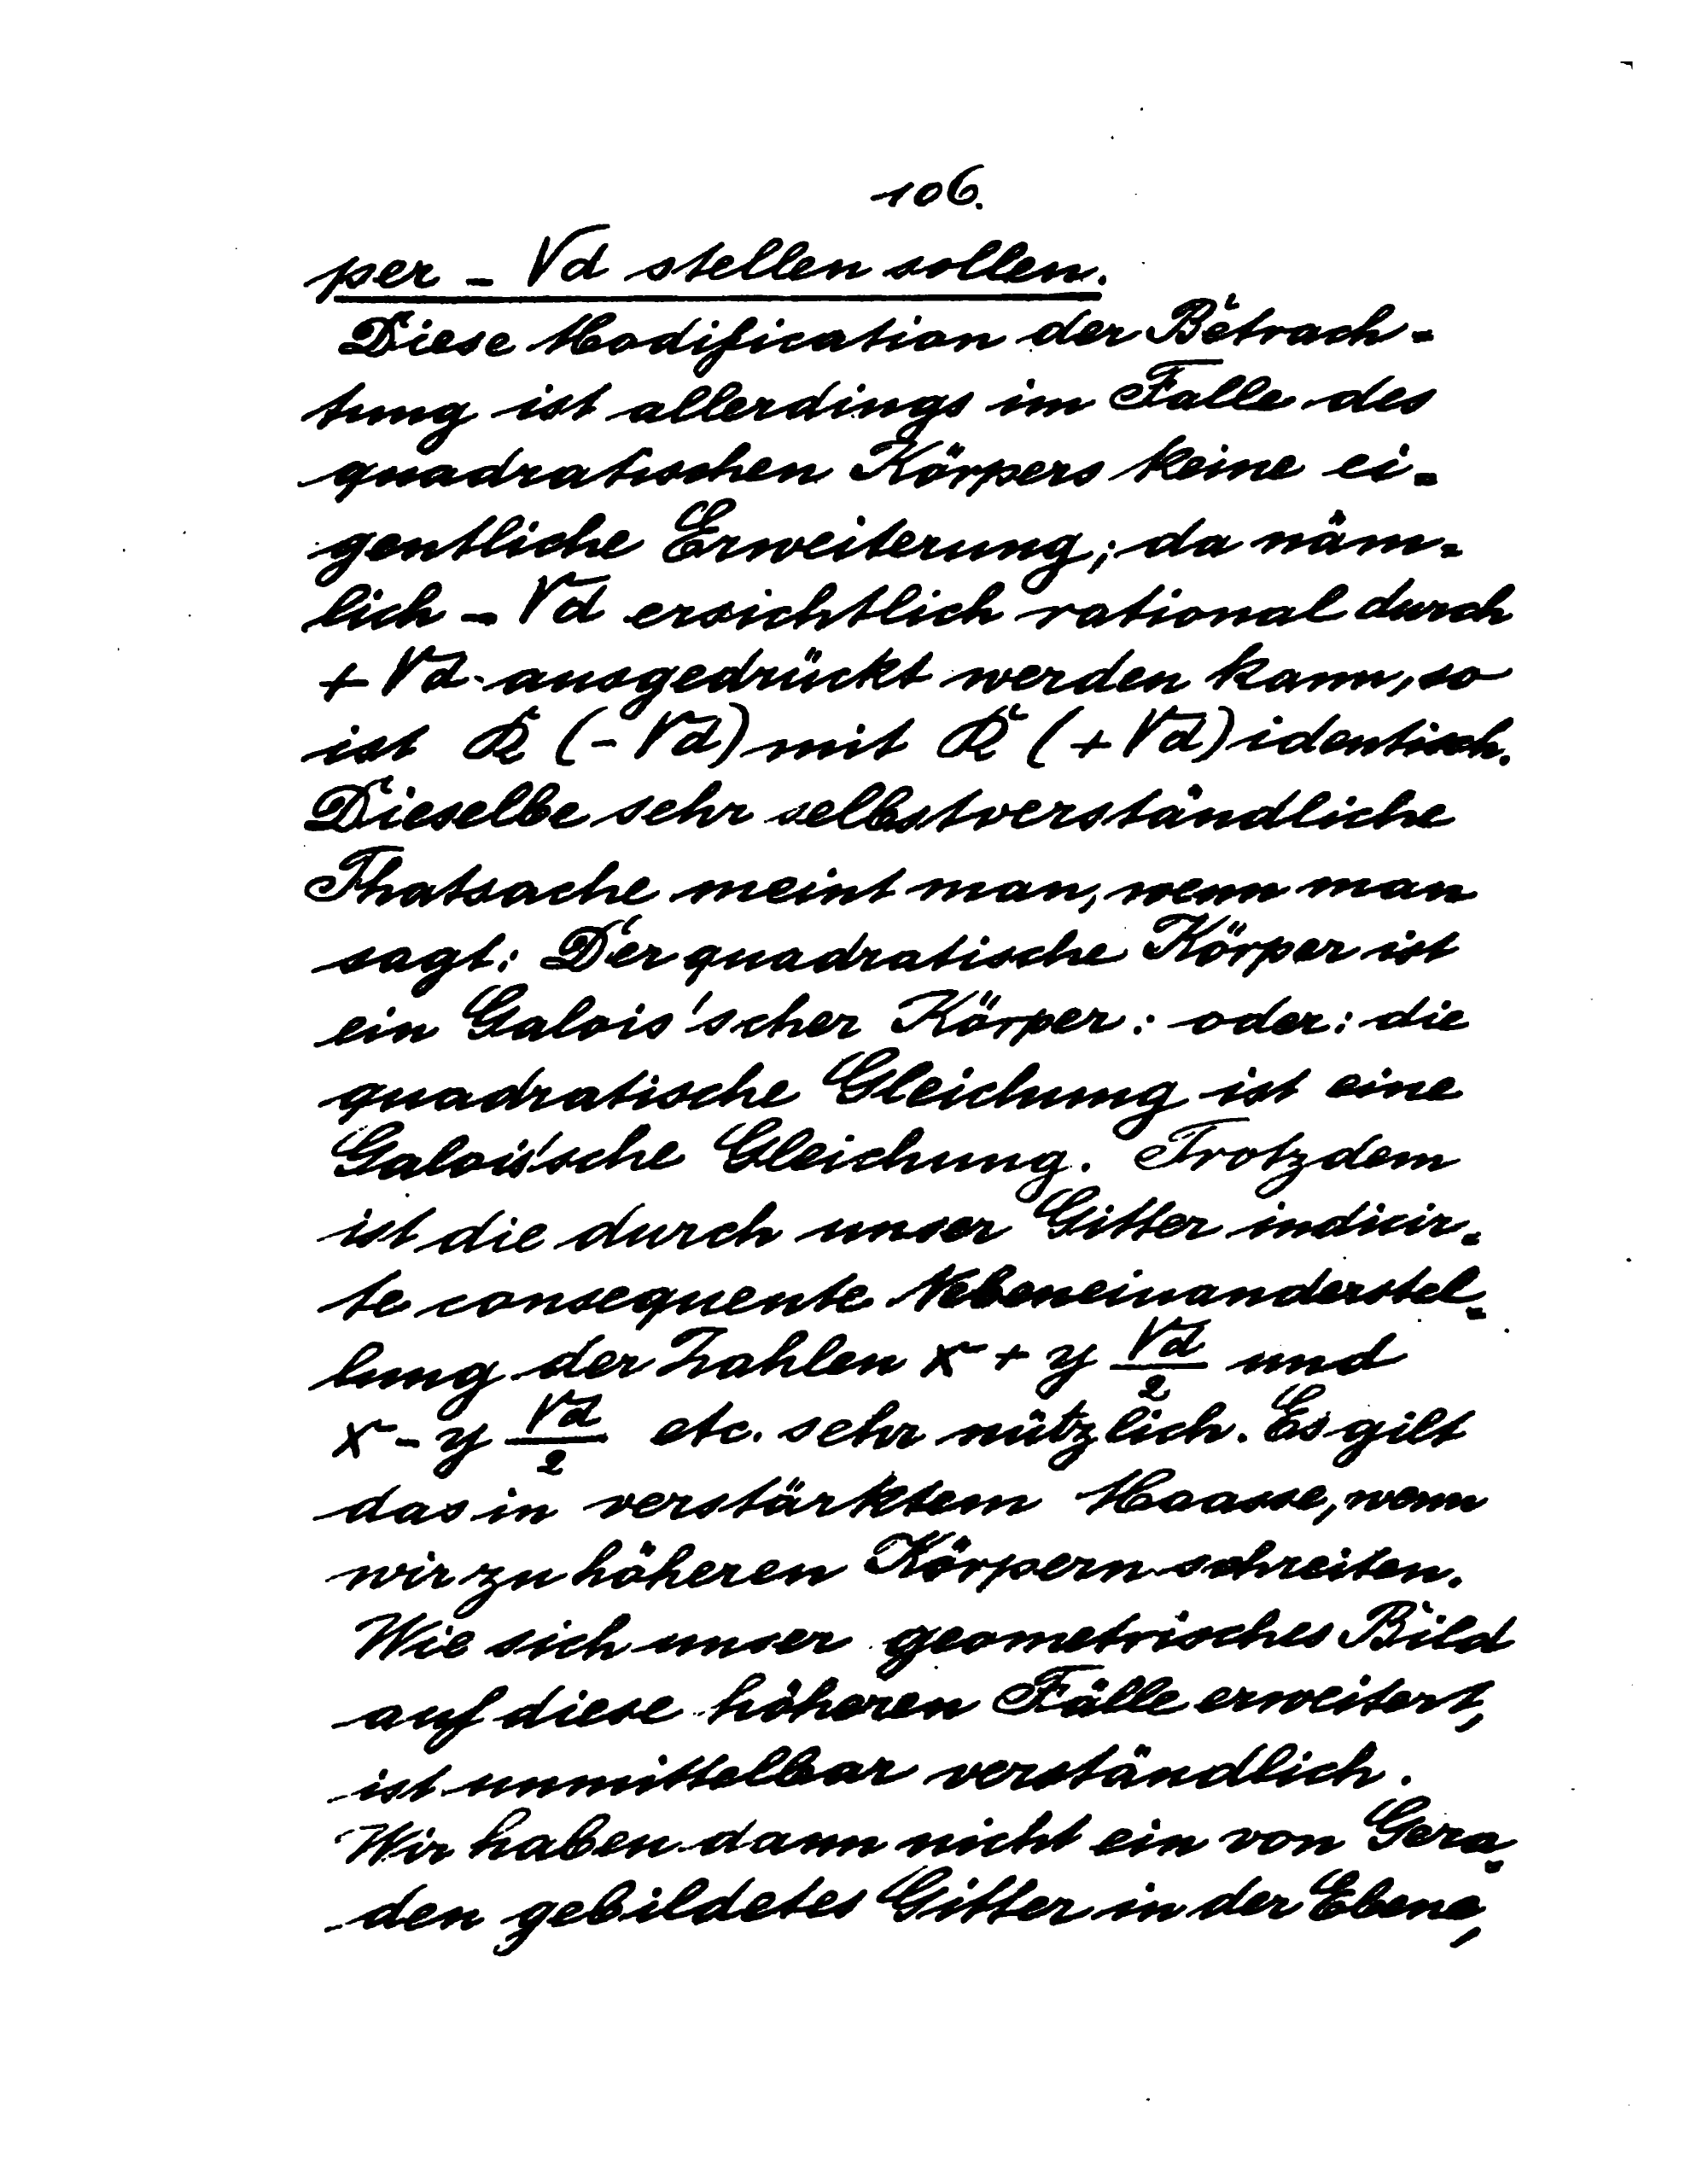 106.
per - √d stellen sollen.
Diese Modification der Betrach-
tung ist allerdings im Falle des
quadratischen Körpers keine ei-
gentliche Erweiterung; da näm-
lich - √d ersichtlich rational durch
+ √d ausgedrückt werden kann, so
ist R (-√d) mit R (+√d) identisch.
Dieselbe sehr selbstverständliche
Thatsache meint man, wenn man
sagt: Der quadratische Körper ist
ein Galois'scher Körper: oder: die
quadratische Gleichung ist eine
Galois'sche Gleichung. Trotzdem
ist die durch unser Gitter indicir-
te consequente Nebeneinanderstel-
lung der Zahlen x + y √d/2 und
x - y √d/2 etc. sehr nützlich. Es gilt
das in verstärktem Maasse, wenn
wir zu höheren Körpern schreiten.
Wie sich unser geometrisches Bild
auf diese höheren Fälle erweitert,
ist unmittelbar verständlich.
Wir haben dann nicht ein von Gera-
den gebildetes Gitter in der Ebene,